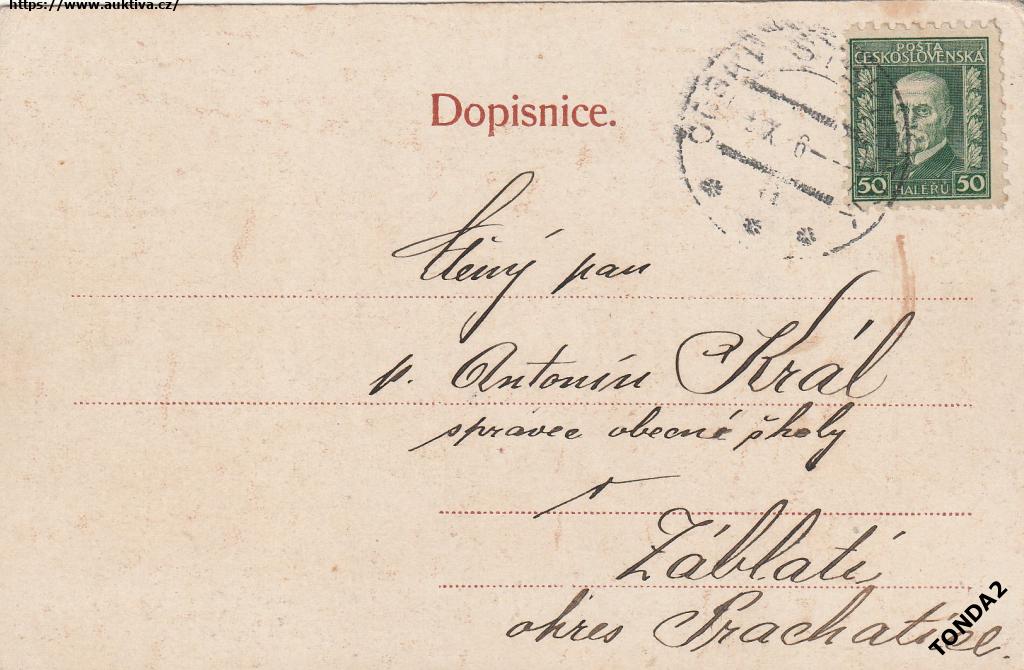 https://www.auktiva.cz/
Dopisnice.
POŠTA
ČESKOSLOVENSKÁ
50 HALÉŘŮ 50
Ctěný pan
p. Antonín Král
správce obecné školy
v
Záblatí
okres Prachatice.
TONDA2